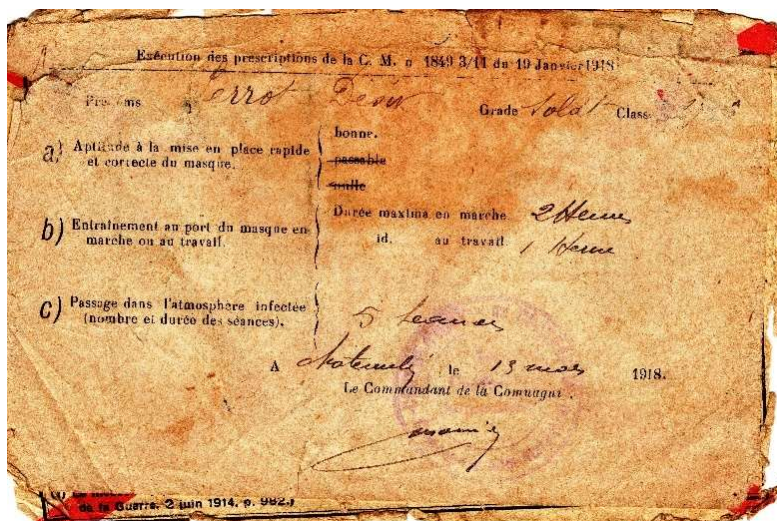 Exécution des prescriptions de la C. M. n 1849 3/11 du 19 Janvier 1918
Pré oms Perrot Grade Soldat Class
a) Aptitude à la mise en place rapide
et correcte du masque.
bonne.
passable
nulle
b) Entraînement au port du masque en
marche ou au travail.
Durée maxima en marche 2 Heures
id. au travail 1 Heure
c) Passage dans l'atmosphère infectée
(nombre et durée des séances).
5 séances
A le 13 mars 1918.
Le Commandant de la Compagnie.
de la Guerre. 2 juin 1914. p. 982.)